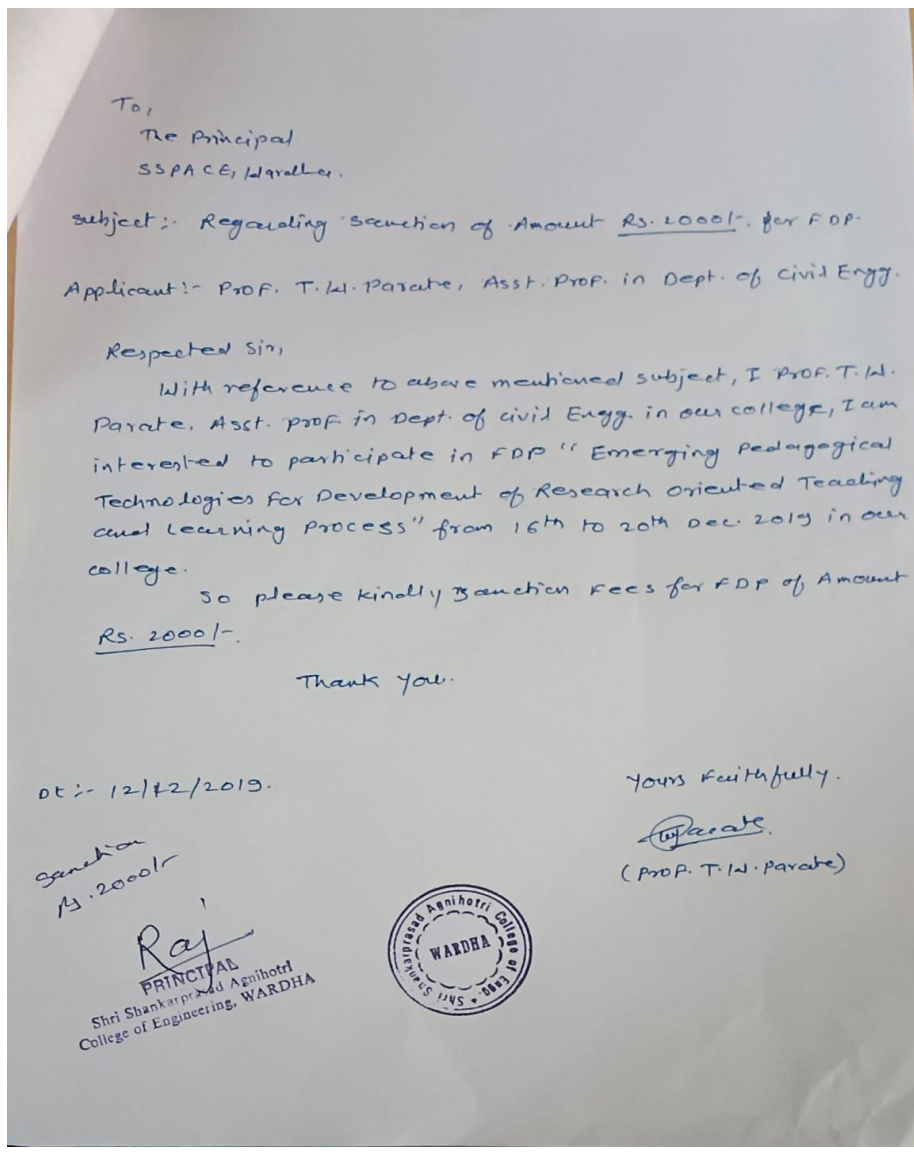 To,
The Principal
SSPACE, Wardha.
Subject:- Regarding sanction of Amount Rs. 2000/-. for FDP.
Applicant:- Prof. T.W. Parate, Asst. Prof. in Dept. of Civil Engg.
Respected Sir,
With reference to above mentioned subject, I Prof. T.W.
Parate. Asst. prof. in Dept. of civil Engg. in our college, I am
interested to participate in FDP "Emerging Pedagogical
Technologies For Development of Research oriented Teaching
and Learning Process" from 16th to 20th Dec. 2019 in our
college.
So please kindly sanction Fees for FDP of Amount
Rs. 2000/-.
Thank you.
Dt:- 12/12/2019.
Yours Faithfully.
Parate
(Prof. T.W. Parate)
Sanction
Rs. 2000/-
Raj
PRINCIPAL
Shri Shankarprasad Agnihotri
College of Engineering, WARDHA
Shri Shankarprasad Agnihotri College of Engg.
WARDHA